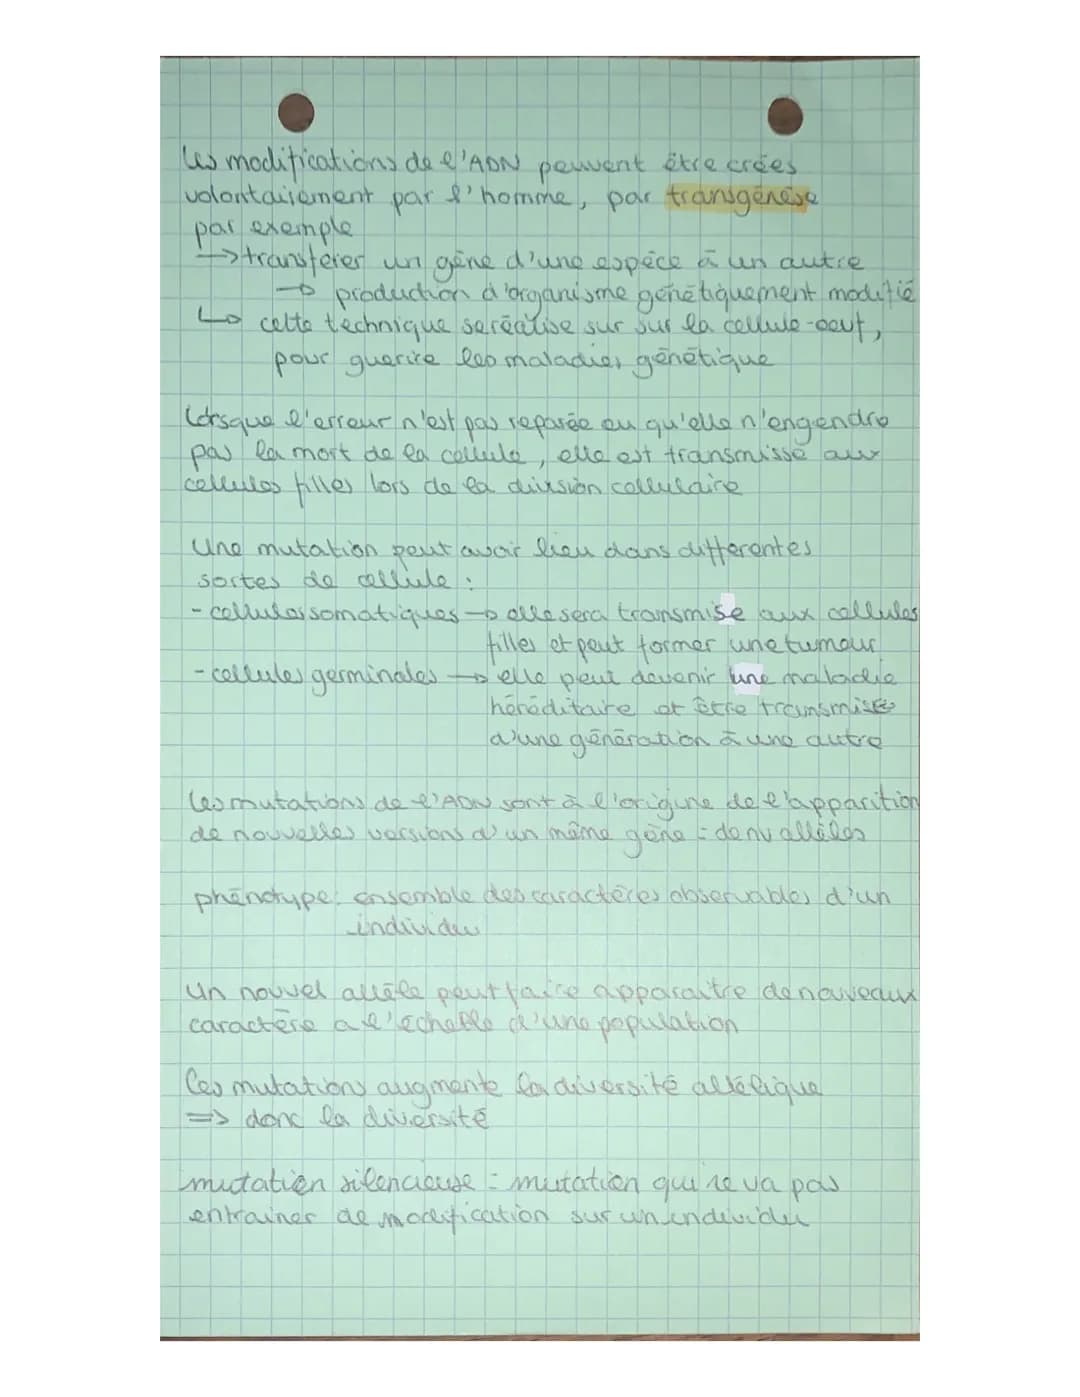 Les modifications de l'ADN peuvent être crées
volontairement par l'homme, par transgénèse
par exemple
→ transférer un gène d'une espèce à un autre
→ production d'organisme génétiquement modifié
↳ cette technique se réalise sur sur la cellule-oeuf,
pour guerire les maladies génétique
Lorsque l'erreur n'est pas reparée ou qu'elle n'engendre
pas la mort de la cellule, elle est transmisse aux
cellules filles lors de la division cellulaire
Une mutation peut avoir lieu dans differentes
sortes de cellule :
- cellules somatiques → elle sera transmise aux cellules
filles et peut former une tumeur
- cellules germinales → elle peut devenir une maladie
héréditaire et être transmise
d'une génération à une autre
Les mutations de l'ADN sont à l'origine de l'apparition
de nouvelles versions d'un même gène = de nv allèles
phénotype: ensemble des caractères observables d'un
individu
Un nouvel allèle peut faire apparaitre de nouveaux
caractère a l'échelle d'une population
Les mutations augmente la diversité allélique
=> donc la diversité
mutation silencieuse = mutation qui ne va pas
entrainer de modification sur un individu